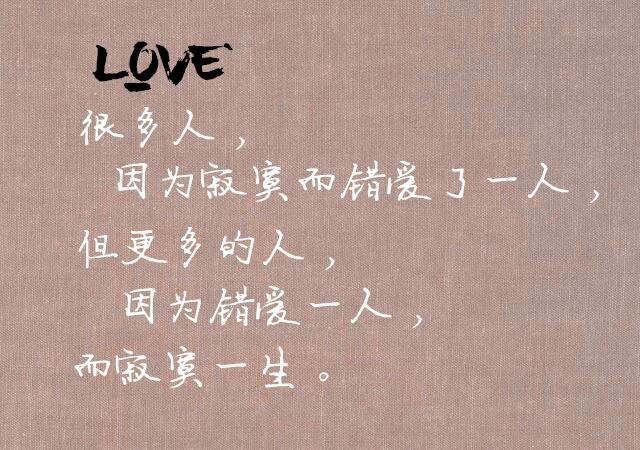 LOVE
很多人，
因为寂寞而错爱了一人，
但更多的人，
因为错爱一人，
而寂寞一生。